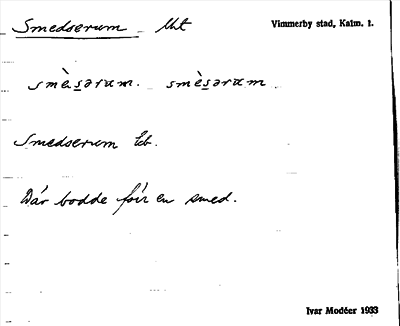 Smedserum Uht Vimmerby stad, Kalm. l.
smè̀sərum. smèsərum
Smedserum lb.
Där bodde förr en smed.
Ivar Modéer 1933